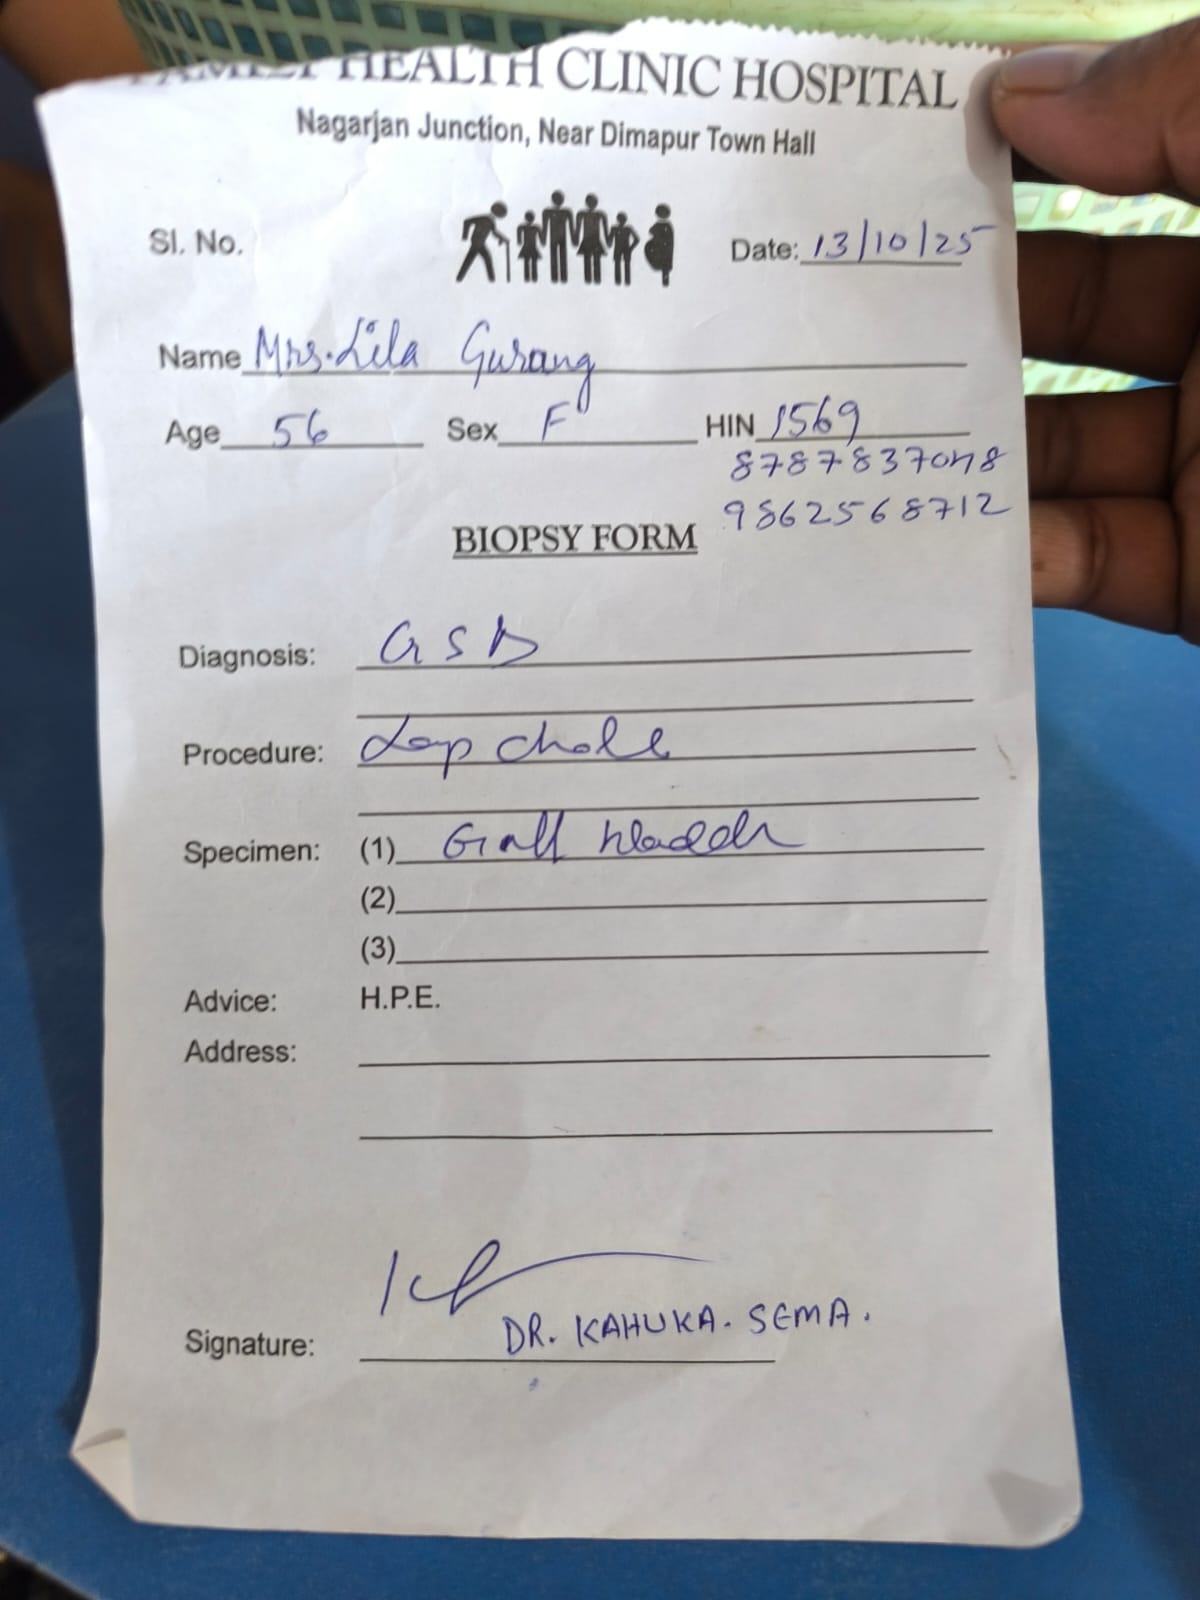 FAMILY HEALTH CLINIC HOSPITAL
Nagarjan Junction, Near Dimapur Town Hall
Sl. No. Date: 13/10/25
Name Mrs. Lila Gurang
Age 56 Sex F HIN 1569
8787837078
9862568712
BIOPSY FORM
Diagnosis: GSD
Procedure: Lap chole
Specimen: (1) Gall bladdr
(2)
(3)
Advice: H.P.E.
Address:
Signature: DR. KAHUKA. SEMA.